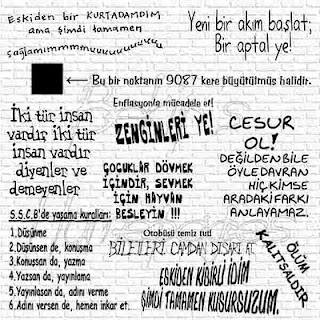 Eskiden bir KURTADAMDIM
ama şimdi tamamen
sağlamımmmmuuuuuuuuu
Yeni bir akım başlat;
Bir aptal ye!
Bu bir noktanın 9087 kere büyütülmüş halidir.
İki tür insan
vardır iki tür
insan vardır
diyenler ve
demeyenler
Enflasyonla mücadele et!
ZENGİNLERİ YE!
ÇOCUKLAR DÖVMEK
İÇİNDİR, SEVMEK
İÇİN HAYVAN
BESLEYİN !!!
CESUR
OL!
DEĞİLDEN BİLE
ÖYLE DAVRAN
HİÇ KİMSE
ARADAKİ FARKI
ANLAYAMAZ.
S.S.C.B'de yaşama kuralları:
1.Düşünme
2.Düşünsen de, konuşma
3.Konuşsan da, yazma
4.Yazsan da, yayınlama
5.Yayınlasan da, adını verme
6.Adını versen de, hemen inkar et.
Otobüsü temiz tut!
BİLETLERİ CAMDAN DIŞARI AT
ESKİDEN KİBİRLİ İDİM
ŞİMDİ TAMAMEN KUSURSUZUM.
ÖLÜM
KALITSALDIR